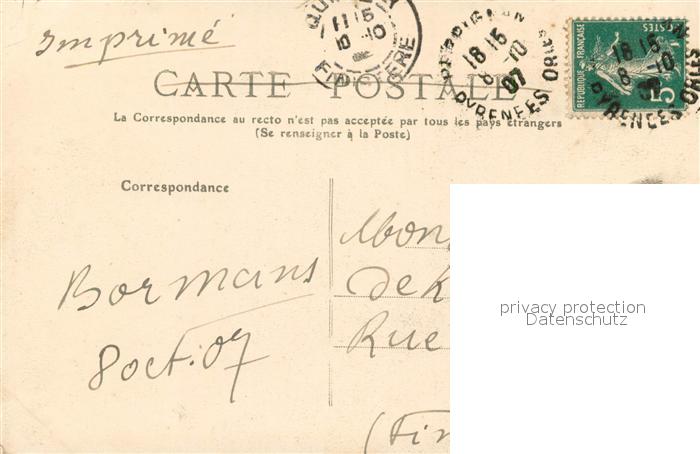 Imprimé
QUI
11 15
10 10
PERPIGNAN
18 15
8 - 10
07
PYRENEES ORIES
REPUBLIQUE FRANÇAISE
POSTES
5
18 15
8 - 10
PYRENEES ORIES
CARTE POSTALE
La Correspondance au recto n'est pas acceptée par tous les pays étrangers
(Se renseigner à la Poste)
Correspondance
Bormans
8 oct. 07
Mon
de K
Rue
(Fin
privacy protection
Datenschutz